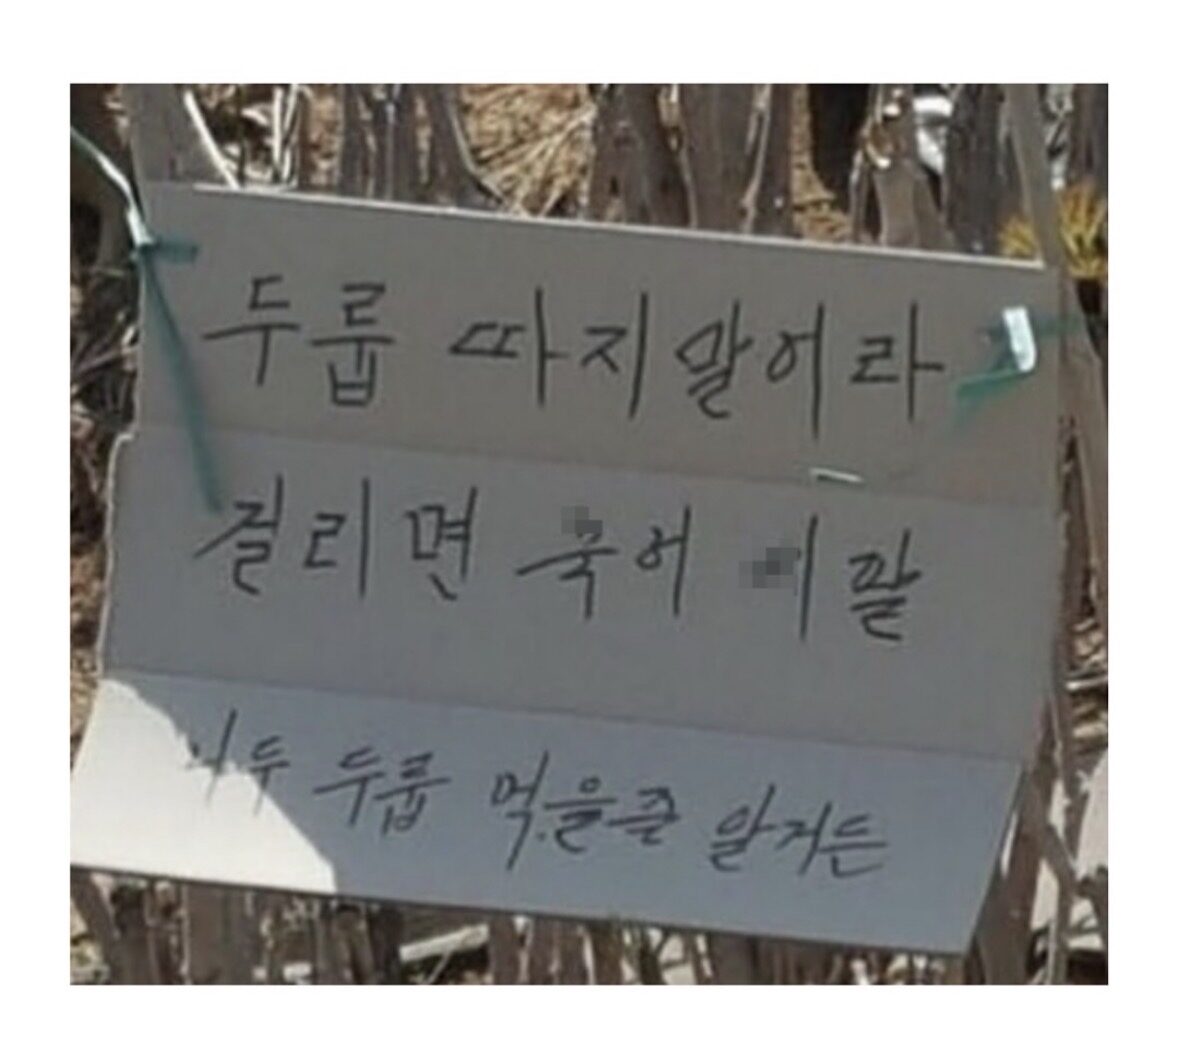 두룹 따지말어라
걸리면 죽어 팔
나두 두룹 먹을줄 알거든